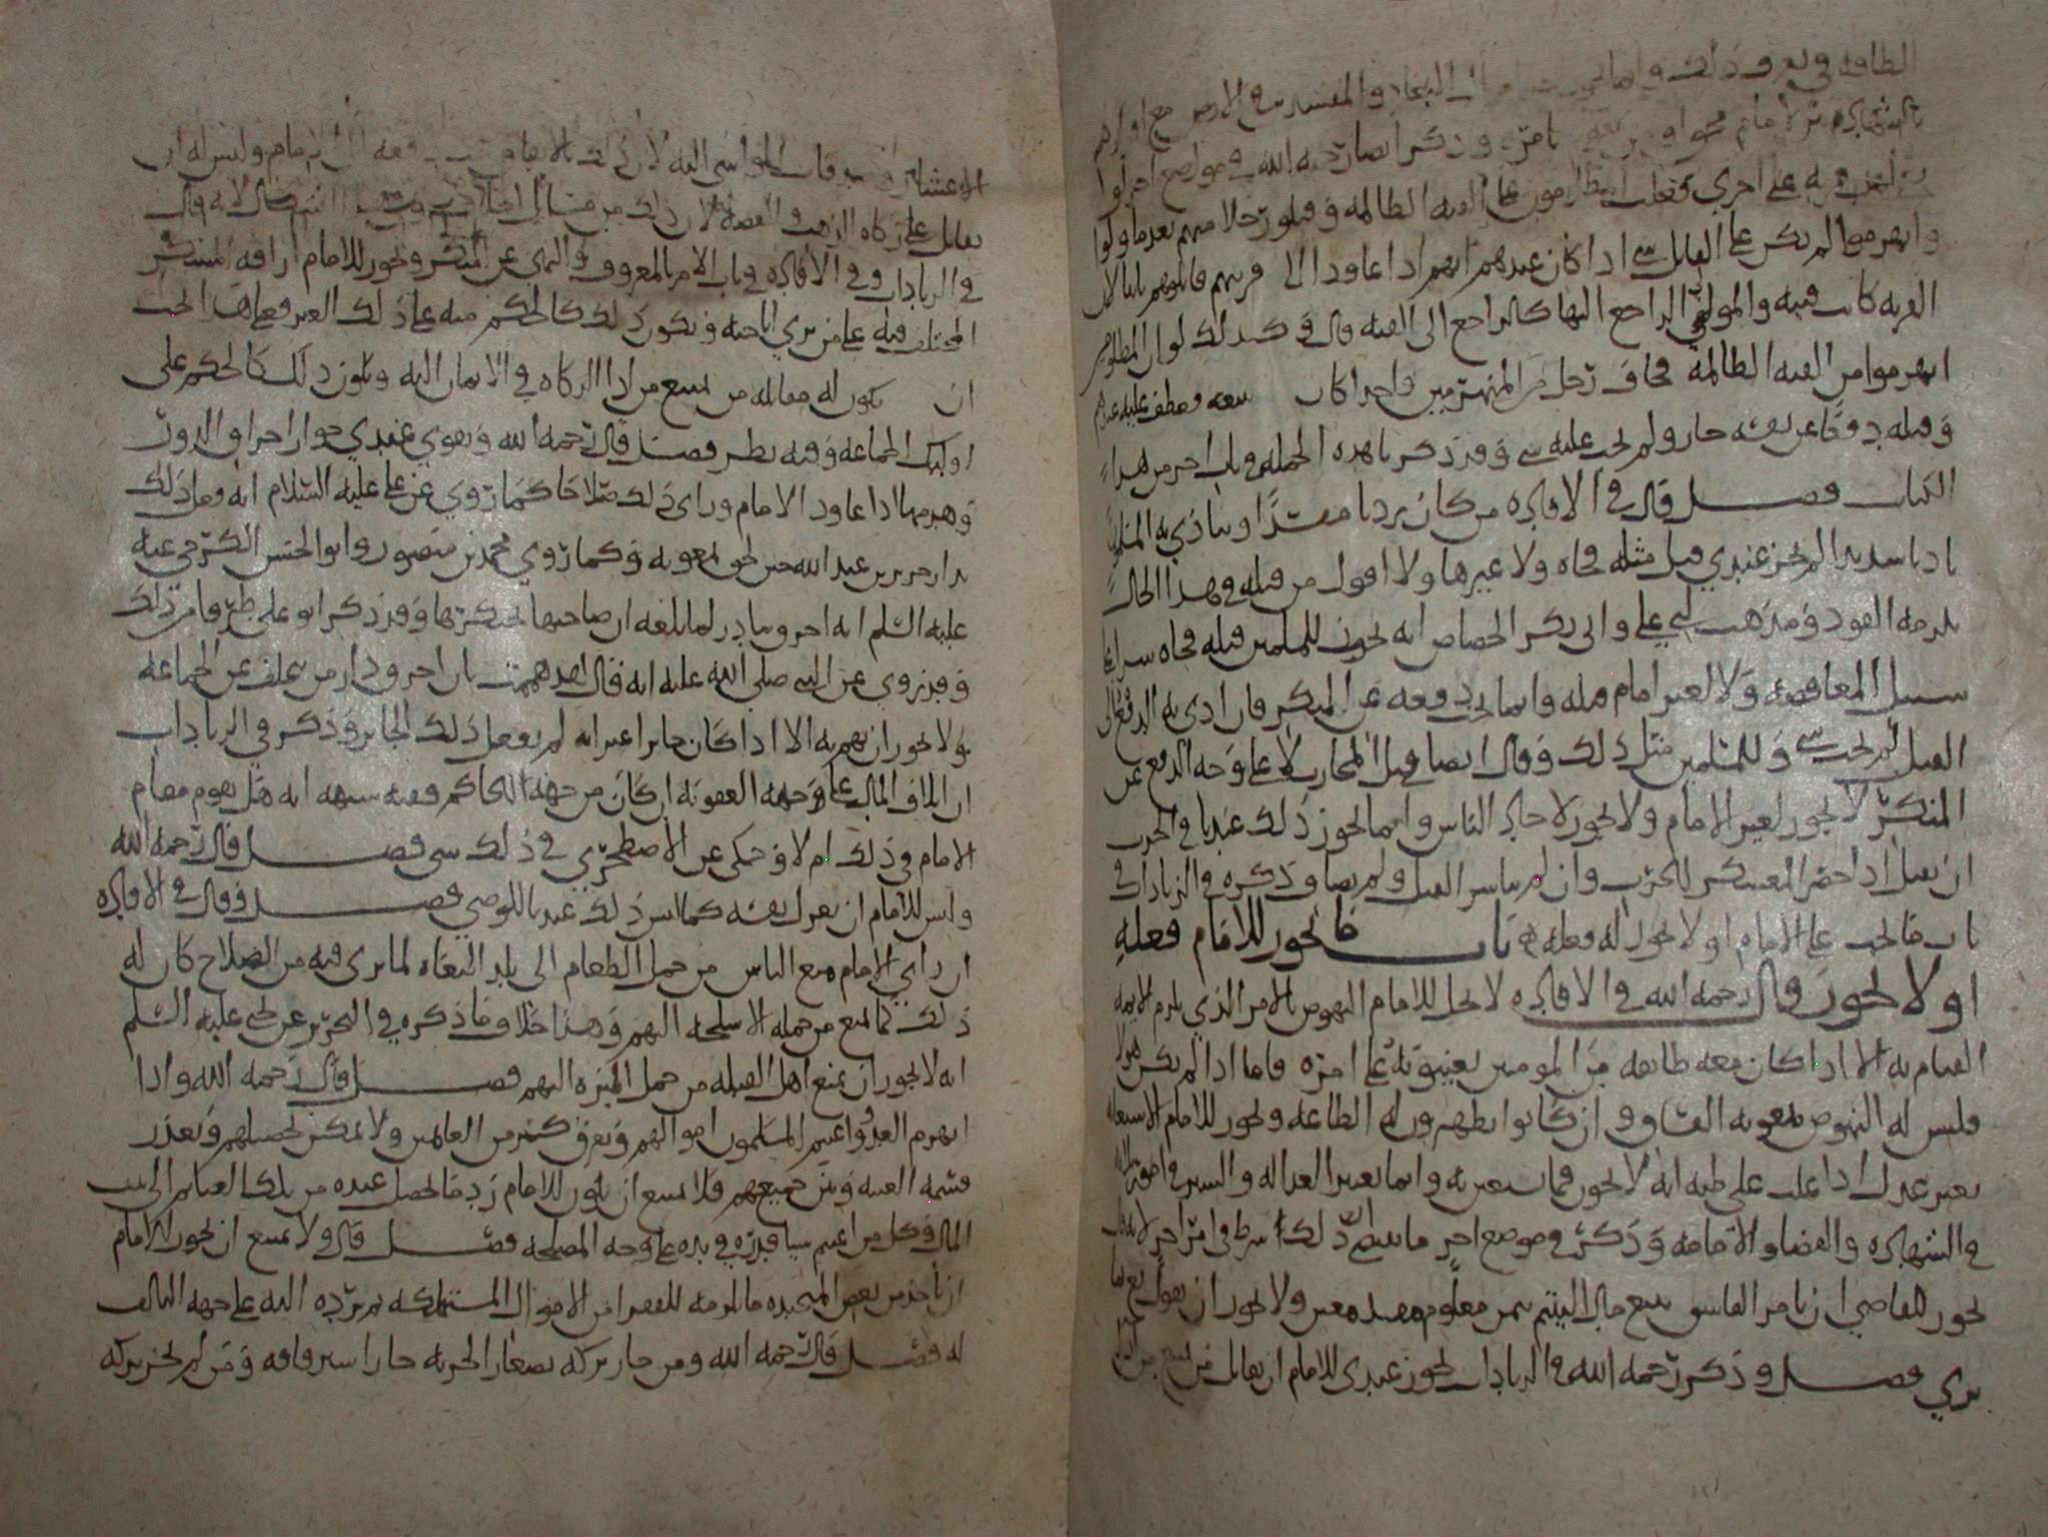 الطاقه في
بالشهاده من الامام
على اخرى فغلب المظلومون على الفيه الظالمه وقتلو رجلا منهم بعدما ولوا
وانهزموا لم يكن على القاتل شي اذا كان عندهم انهم اذا عاودوا الى قريتهم قاتلوهم ثانيا لان
القريه كانت فيه والمولي الراجع اليها كالراجع الى الفيه قال وكذلك لو ان المظلومين
انهزموا من الفيه الظالمه فخاف رجل من المنهزمين واحدا كان يتبعه فعطف عليه
وقتله دفعا عن نفسه جاز ولم يجب عليه شي وقد ذكرنا هذه الجمله في باب اخر من هذا
الكتاب فصل قال في الافاده من كان يزديا مفسدا ويتاذي به المسلمون
تاديا شديدا لم يجز عندي قتل مثله فجاه ولا غيرها ولا اقول من قتله في هذا الحال
يلزمه القود ومذهب ابي علي وابي بكر الجصاص انه يجوز للمسلمين قتله فجاه سرا على
سبيل المغافصه ولا لغير امام قتله وانما يجب دفعه عن المنكر فان ادى به الدفع الى
القتل لم يجب شي وللمسلمين مثل ذلك وقال ايضا قتل المحارب لا على وجه الدفع عن
المنكر لا يجوز لغير الامام ولا يجوز لاحاد الناس وانما يجوز ذلك عندنا في الحرب
ان يقتل اذا حضر المعسكر للحرب وان لم يباشر القتل ولم يصا وذكره في الزيادات في
باب ما يجب على الامام او لا يجوز له فعله باب ما يجوز للامام فعله
او لا يجوز قال رحمه الله في الافاده لا يحل للامام النهوض بالامر الذي يلزم الايمه
القيام به الا اذا كان معه طايفه من المومنين يعينونه على امره فاما اذا لم يكن هولا
فليس له النهوض بمعونه الفساق وان كانوا يظهرون له الطاعه ويجوز للامام الاستعانه
بغير عدل اذا غلب على ظنه انه لا يخون فيما يستعين به وانما يعتبر العداله والستر في
في الشهاده والقضا والامامه وذكر في موضع اخر ما يقتضي ان ذلك شرط في امر اخر لانه قال
يجوز للقاضي ان يامر الفاسق ببيع مال اليتيم بثمن معلوم ولا يجوز ان يقول بع بما
ترى فصل وذكر رحمه الله في الزيادات يجوز عندي للامام ان يقاتل من امتنع من
الاعشار وليس له ان
يقاتل على زكاه الذهب والفضه لان ذلك من مسايل لانه قال
في الزيادات وفي الافاده في باب الامر بالمعروف والنهي عن المنكر ويجوز للامام اراقه المسكر
المختلف فيه على من يرى اباحته ويكون ذلك كالحكم منه على ذلك الغير فعلى هذا يجب
ان يكون له مقاتله من يمتنع من اداء الزكاه في الاثمان اليه ويكون ذلك كالحكم على
اوليك الجماعه وفيه نظر فصل قال رحمه الله ويقوي عندي جواز احراق الدور
وهدمها اذا عاود الامام وراى ذلك صلاحا كما روي عن علي عليه السلام انه فعل ذلك
بدار جرير بن عبد الله حين لحق بمعويه وكما روي محمد بن منصور وابو الحسن الكرخي عنه
عليه السلم انه احرق بيادر لما بلغه ان صاحبها احتكرها وقد ذكر ابو علي طرفا من ذلك
وقد روي عن النبي صلى الله عليه انه قال لقد هممت بان احرق دار من يتخلف عن الجماعه
ولا يجوز ان يهم به الا اذا كان جايزا غير انه لم يفعل ذلك الجايز وذكر في الزيادات
ان اتلاف المال على وجه العقوبه ان كان من جهه الحاكم ففيه شبهه انه هل يقوم مقام
الامام في ذلك ام لا وحكى عن الاصطخري في ذلك شي فصل قال رحمه الله
وليس للامام ان يعزل نفسه كما ليس ذلك عندنا للوصي فصل وقال في الافاده
ان راي الامام منع الناس من حمل الطعام الى بلد البغاه لما يرى فيه من الصلاح كان له
ذلك كما يمنع من حمله الاسلحه اليهم وهذا خلاف ما ذكره في التحرير عن يحيى عليه السلم
انه لا يجوز ان يمنع اهل القبله من حمل الميره اليهم فصل قال رحمه الله واذا
انهزم العدو واغتنم المسلمون اموالهم وتفرق كثير من الغانمين ولا يمكن تحصيلهم وتعذر
قسمه الغنيمه بين جميعهم فلا يمتنع ان يكون للامام رد ما يحصل عنده من تلك الغنايم الى بيت
المال وكل من اغتنم شيا قدره في يده على وجه المصلحه فصل قال ولا يمتنع ان يجوز للامام
ان ياخذ من بعض ما لزمه للفقرا من الاموال المستهلكه ثم يرده اليه على جهه التالف
له فصل قال رحمه الله ومن جاز تركه بصغار الجزيه جاز استرقاقه ومن لم يجز تركه